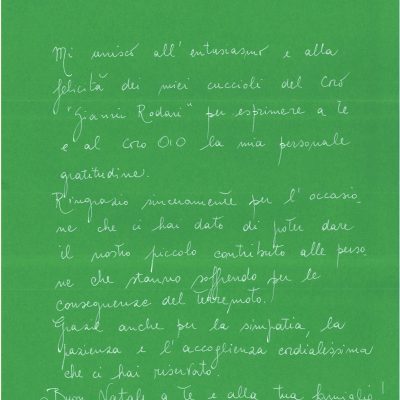 Mi unisco all'entusiasmo e alla
felicità dei miei cuccioli del Coro
"Gianni Rodari" per esprimere a Te
e al coro O10 la mia personale
gratitudine.
Ringrazio sinceramente per l'occasio-
ne che ci hai dato di poter dare
il nostro piccolo contributo alle perso-
ne che stanno soffrendo per le
conseguenze del terremoto.
Grazie anche per la simpatia, la
pazienza e l'accoglienza cordialissima
che ci hai riservato.
Buon Natale a Te e alla tua famiglia!